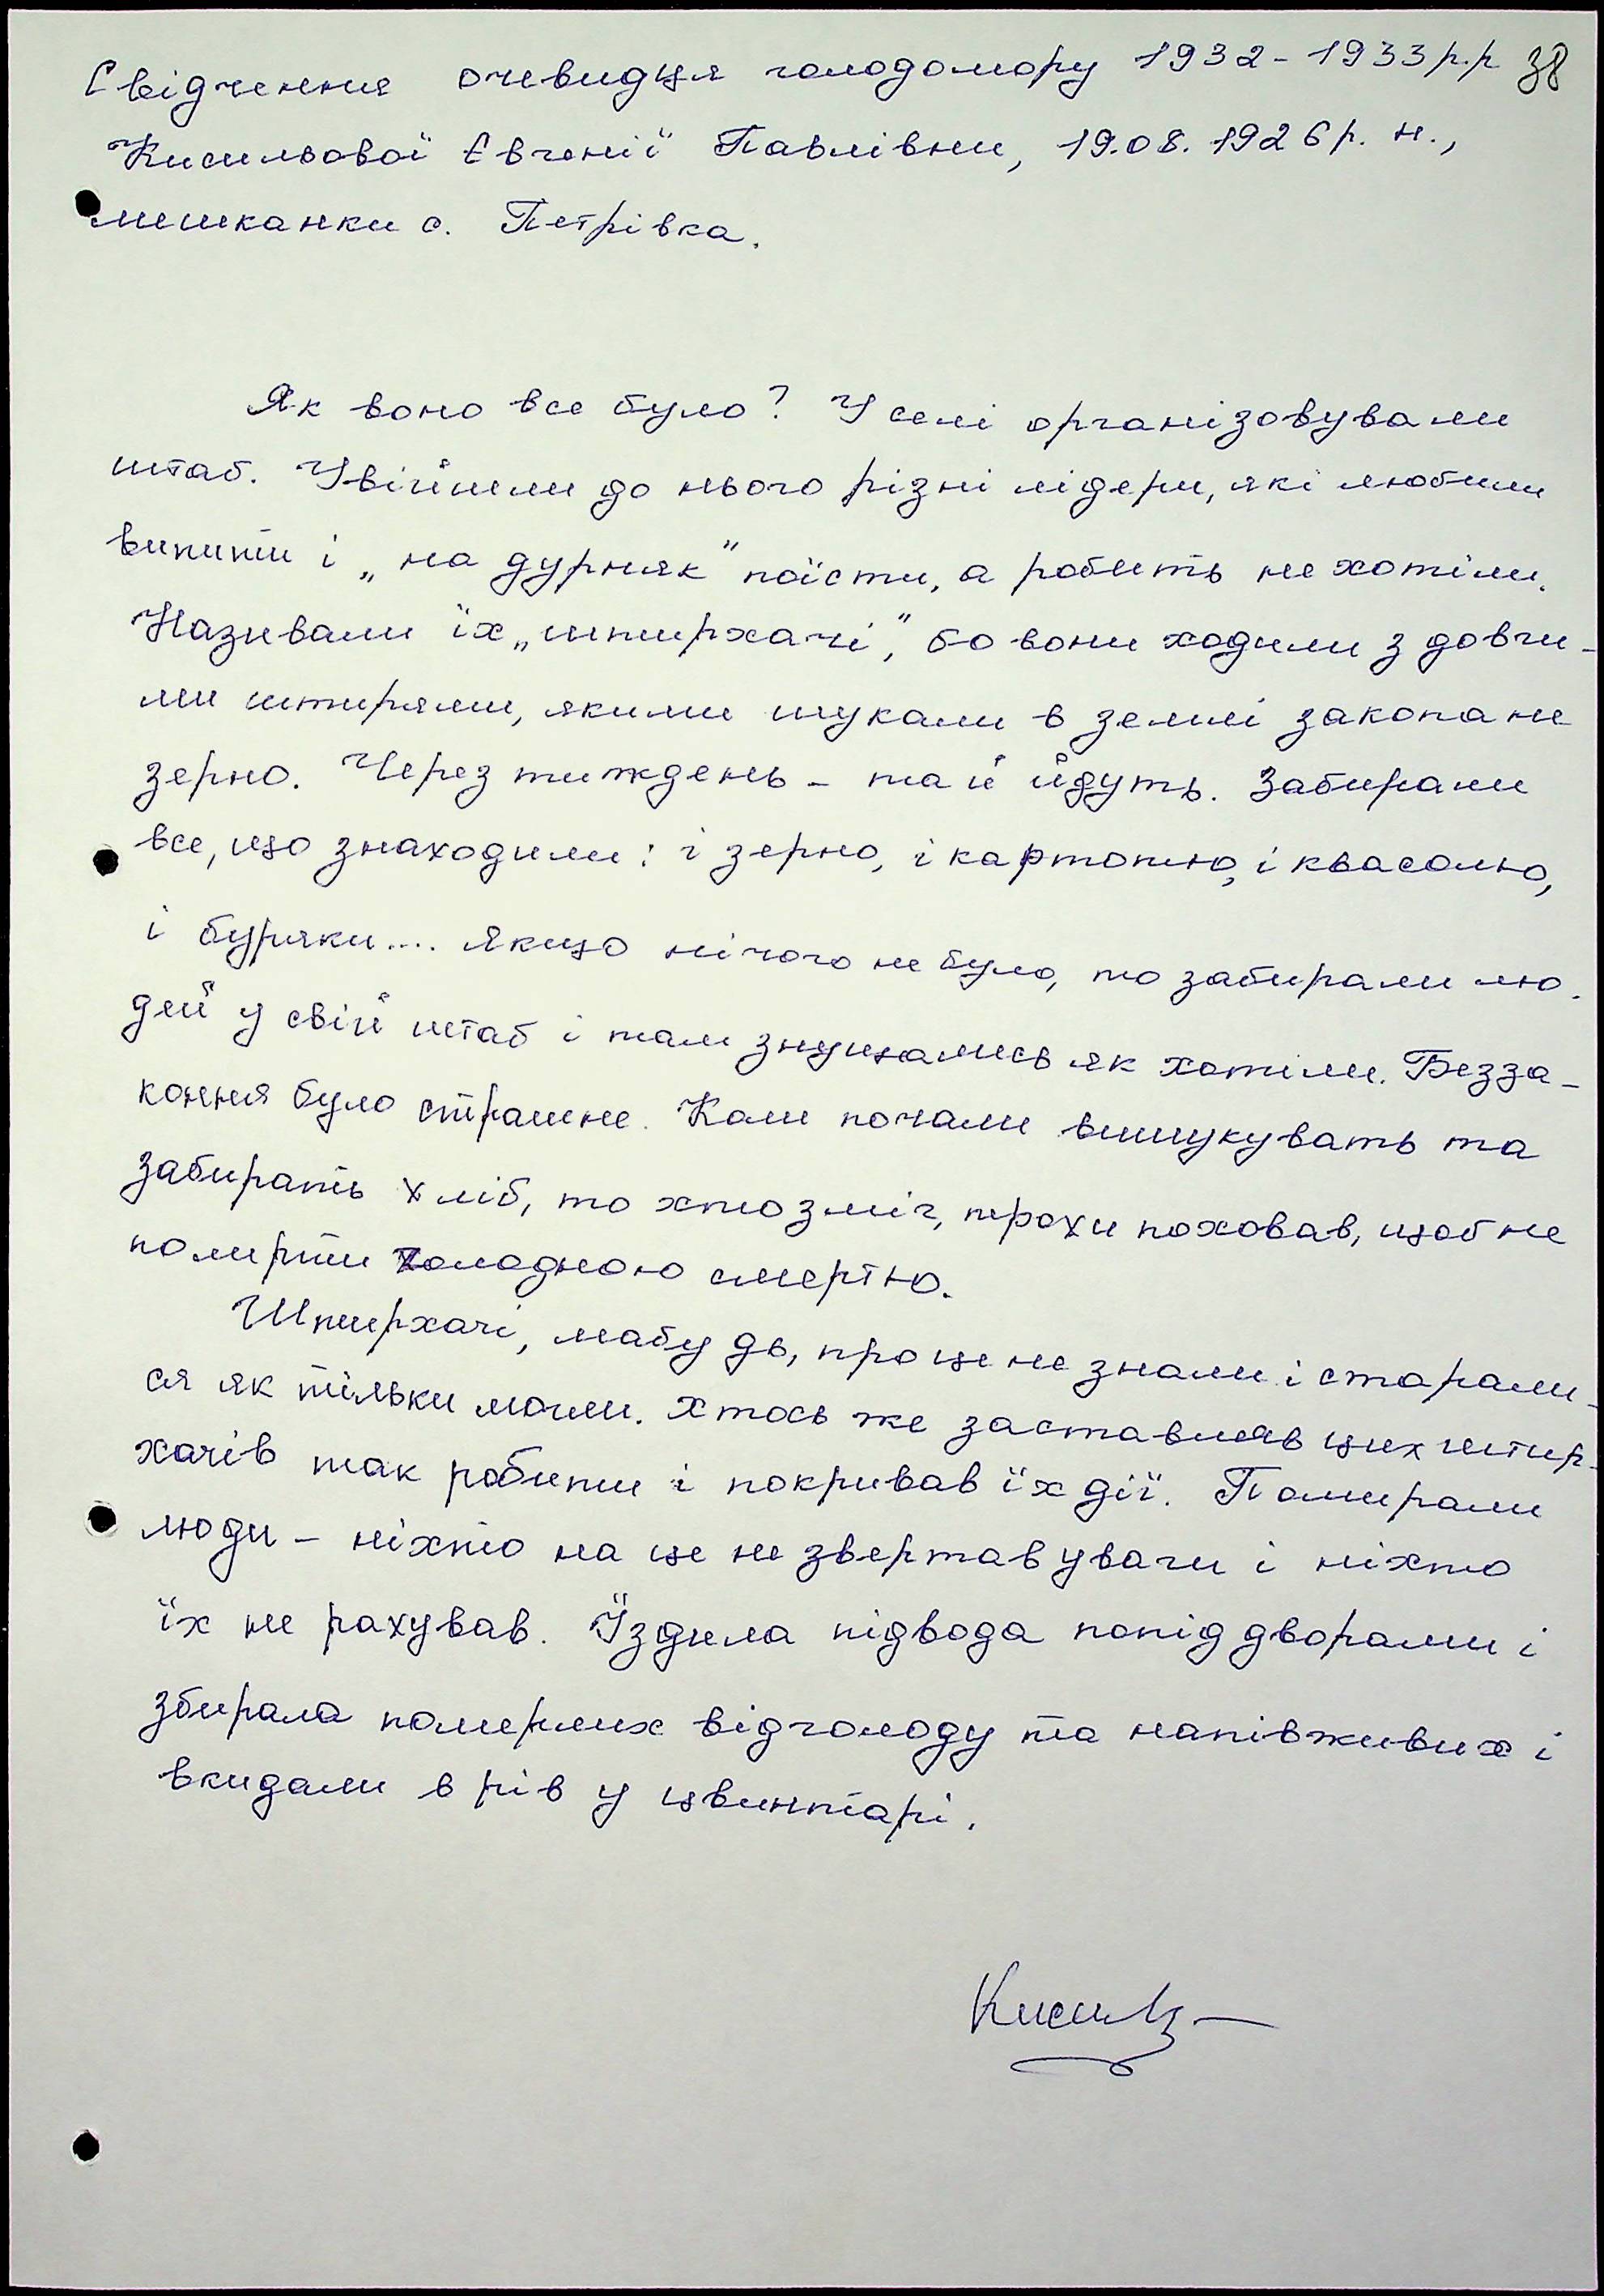 Свідчення очевидця голодомору 1932-1933р.р 38
Кисильової Євгенії Павлівни, 19.08.1926р. н.,
мешканки с. Петрівка.
Як воно все було? У селі організовували
штаб. Увійшли до нього різні лідери, які любили
випити і „на дурняк" поїсти, а робить не хотіли.
Називали їх „штирхачі", бо вони ходили з довги-
ми штирями, якими шукали в землі закопане
зерно. Через тиждень - та й йдуть. Забирали
все, що знаходили: і зерно, і картоплю, і квасолю,
і буряки.... Якщо нічого не було, то забирали лю-
дей у свій штаб і там знущались як хотіли. Безза-
коння було страшне. Коли почали вишукувать та
забирать хліб, то хто зміг, трохи поховав, щоб не
померти голодною смертю.
Штирхачі, мабудь, про це не знали і старали-
ся як тільки могли. Хтось же заставляв цих штир-
хачів так робити і покривав їх дії. Помирали
люди - ніхто на це не звертав уваги і ніхто
їх не рахував. Їздила підвода попід дворами і
збирала померлих від голоду та напівживих і
вкидали в рів у цвинтарі.